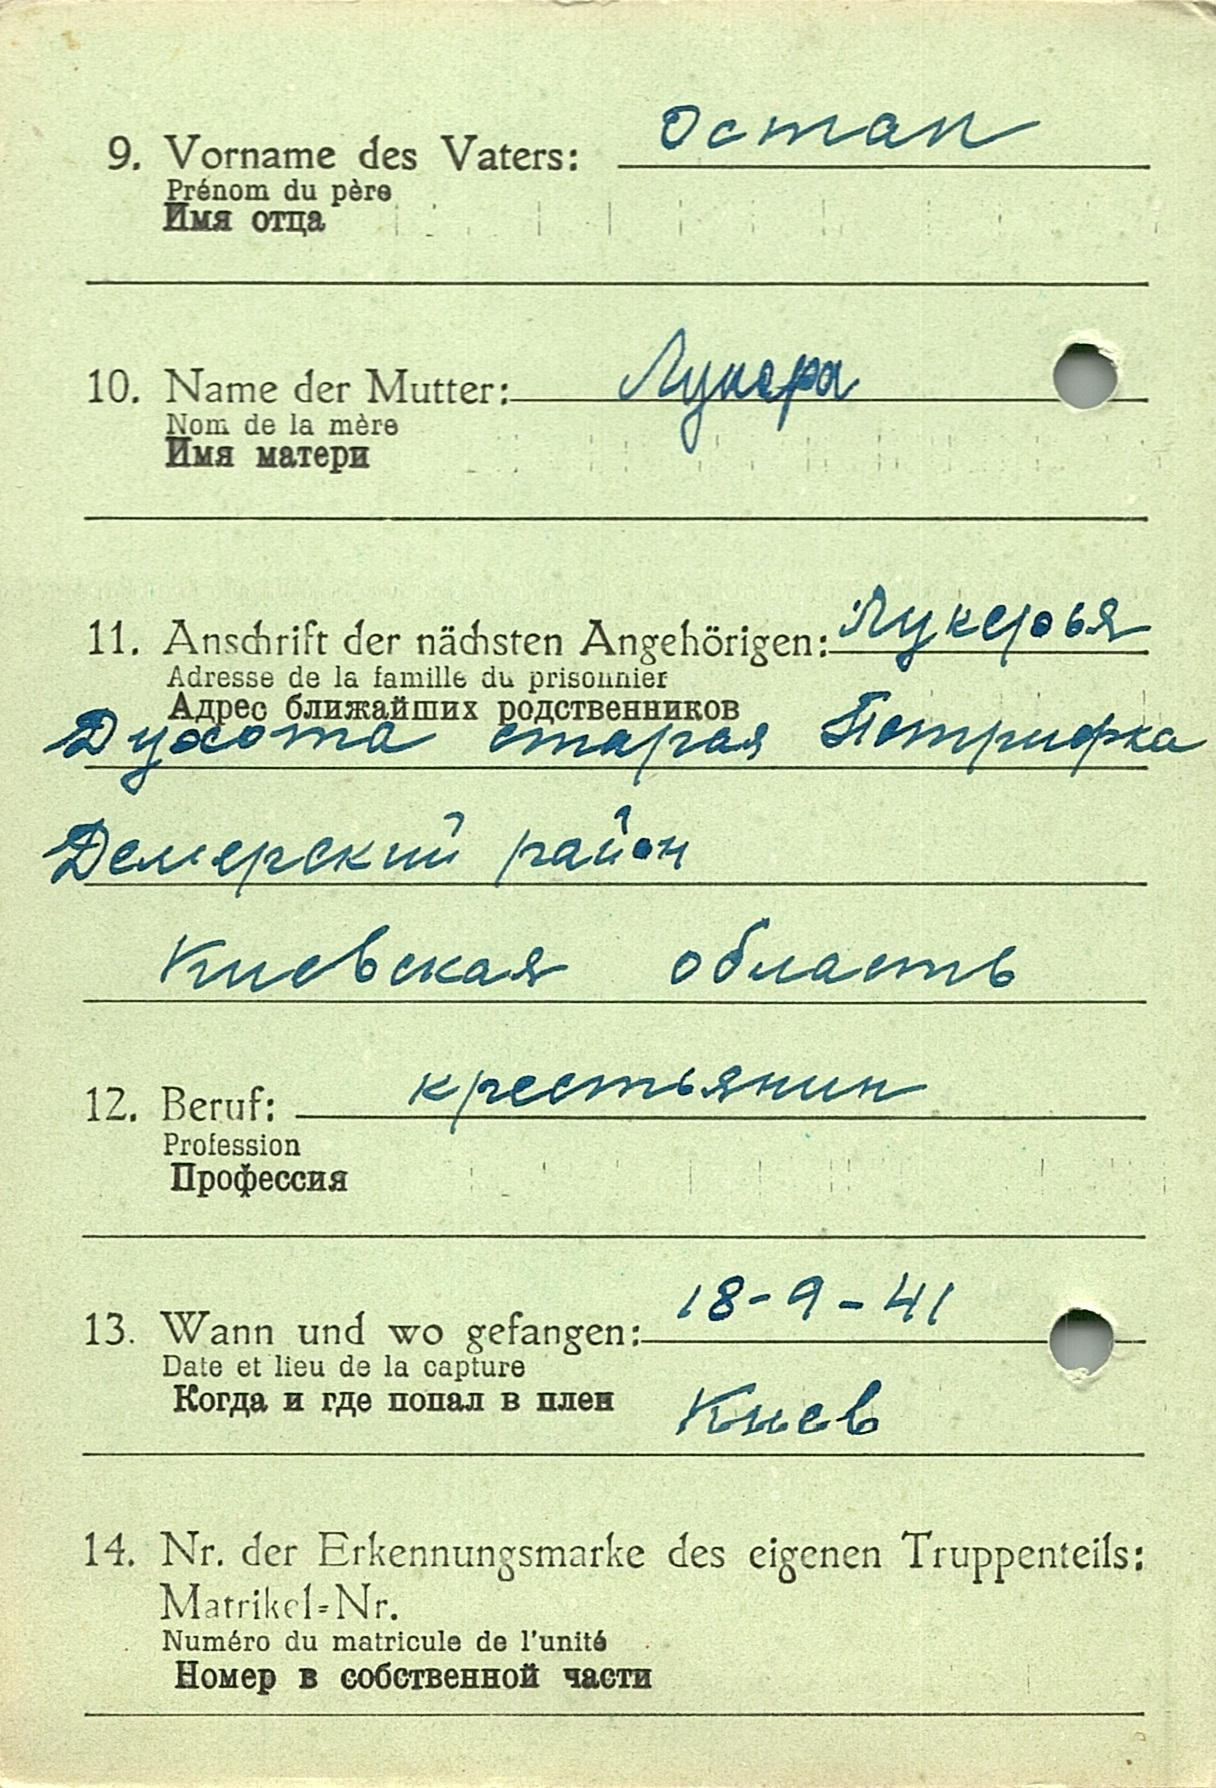 9. Vorname des Vaters: Остап
Prénom du père
Имя отца
10. Name der Mutter: Лукера
Nom de la mère
Имя матери
11. Anschrift der nächsten Angehörigen: Лукерья
Adresse de la famille du prisonnier
Адрес ближайших родственников
Духота старая Петрифка
Демерский район
Киевская область
12. Beruf: крестьянин
Profession
Профессия
13. Wann und wo gefangen: 18-9-41
Date et lieu de la capture
Когда и где попал в плен Киев
14. Nr. der Erkennungsmarke des eigenen Truppenteils:
Matrikel-Nr.
Numéro du matricule de l'unité
Номер в собственной части